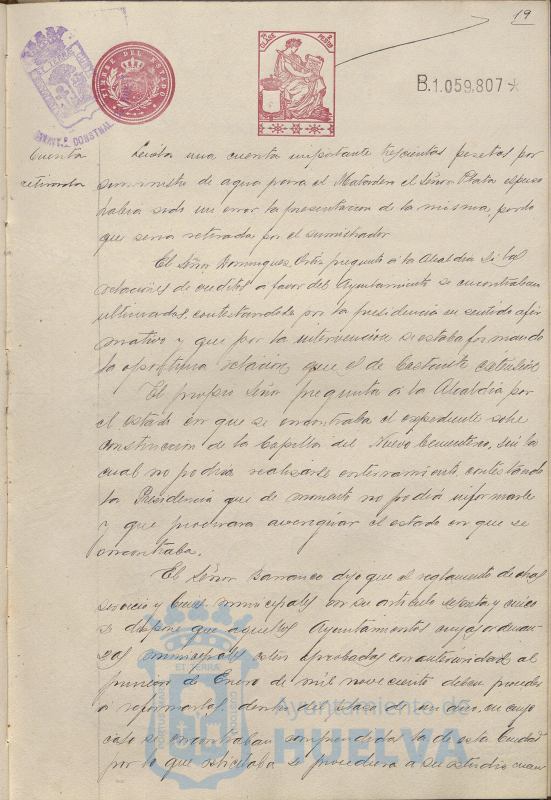 19
TIMBRE DEL ESTADO
B.1.059.807*
Cuenta
retirada
Leída una cuenta importante trescientas pesetas por
suministro de agua para el Matadero el Señor Plata expuso
había sido un error la presentación de la misma, por lo
que sería retirada por el suministrador
El Señor Dominguez Ortiz preguntó á la Alcaldía si las
relaciones de creditos á favor del Ayuntamiento se encontraban
ultimadas, contestandole por la presidencia en sentido afir
mativo y que por la intervencion se estaba formando
la oportuna relacion, que el de
El propio Señor pregunta á la Alcaldía por
el estado en que se encontraba el expediente sobre
construccion de la Capilla del Nuevo Cementerio, sin la
cual no podría realizarse enterramiento, contestando
la Presidencia que de momento no podía informarle
y que procurara averiguar el estado en que se
encontraba.
El Señor Barranco dijo que el reglamento de obras
servicio y bienes municipales en su articulo sesenta y cinco
se dispone que aquellos Ayuntamientos cuyas ordenan
zas municipales esten aprobadas con anterioridad al
primero de Enero de mil novecientos deben proceder
á reformarlas dentro del plazo de un año, en cuyo
caso se encontraban comprendidas las de esta Ciudad
por lo que solicitaba se procediera a su estudio cuan
Ayuntamiento de
HUELVA